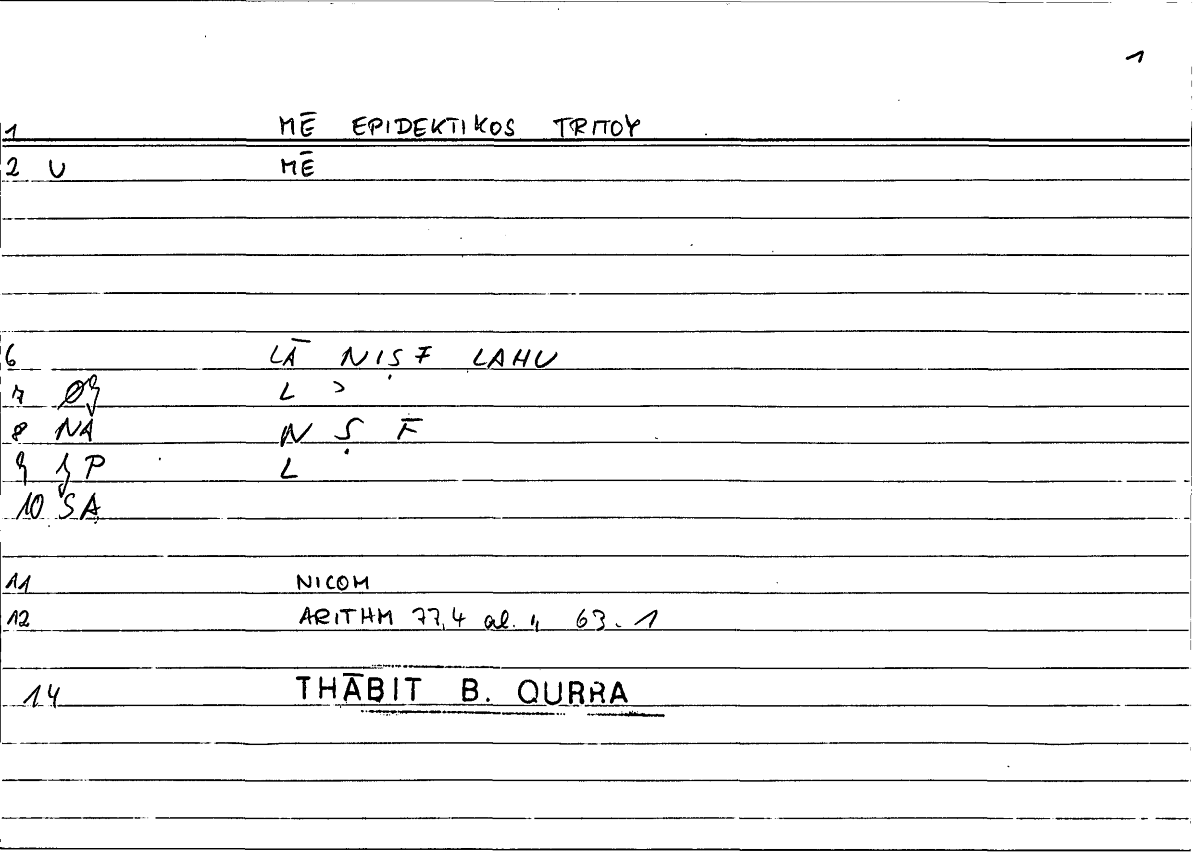 1
1 MĒ EPIDEKTIKOS TRITOY
2 U MĒ
6 LĀ NIṢF LAHU
7 L ʾ
8 NA N Ṣ F
9 P L
10 SA
11 NICOM
12 ARITHM 77,4 al. 63.1
14 THĀBIT B. QURRA